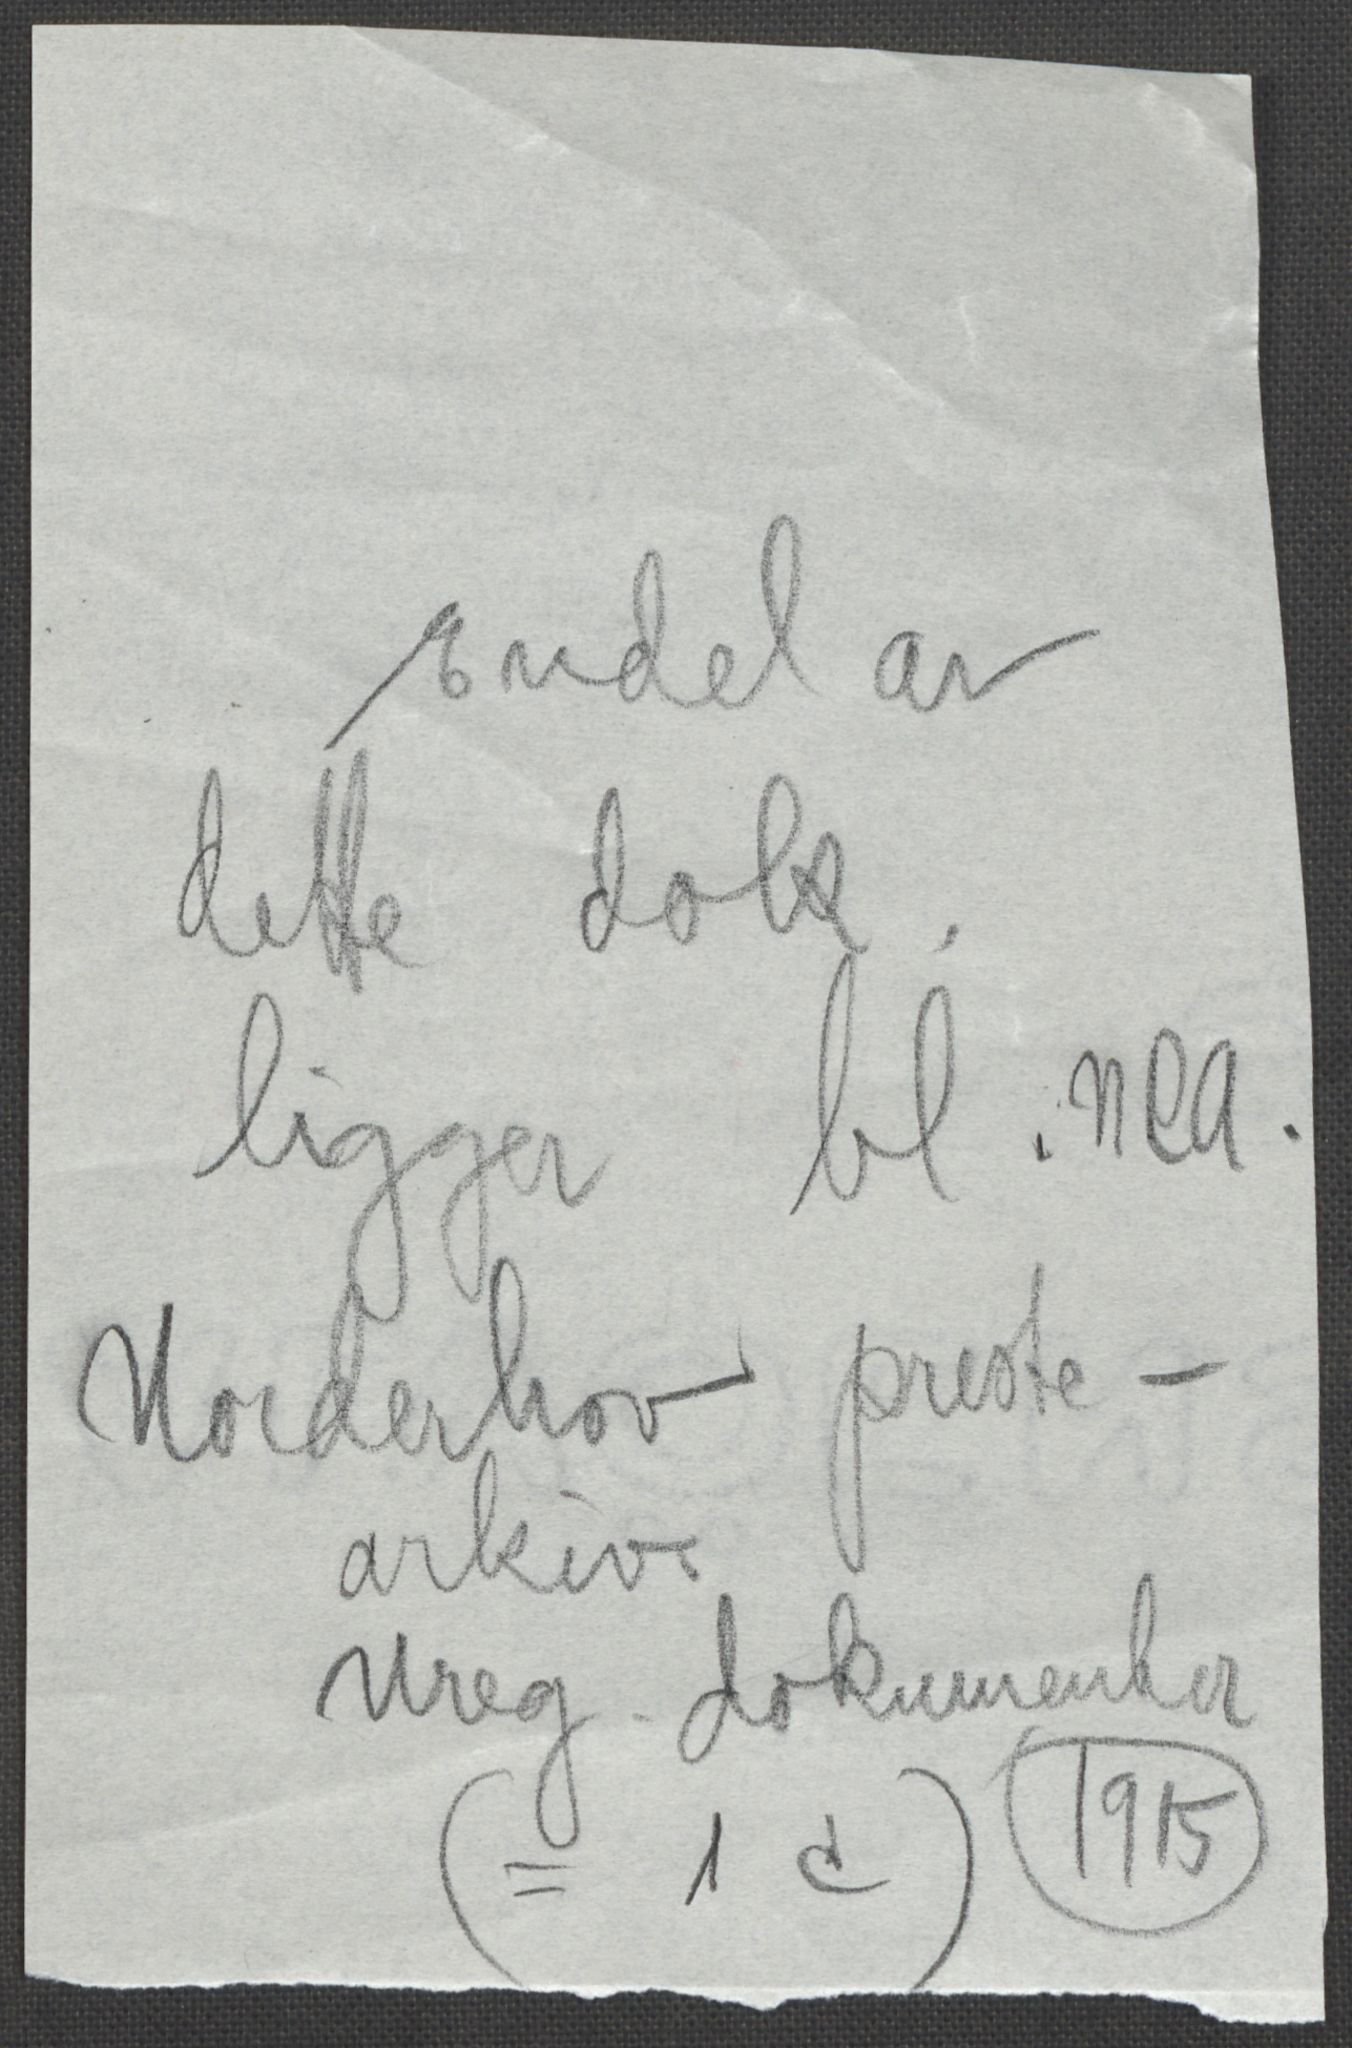 Endel av
dette dok.
ligger bl.
Norderhov preste-
arkiv.
Ureg. dokumenter
(= 1 c) 1915